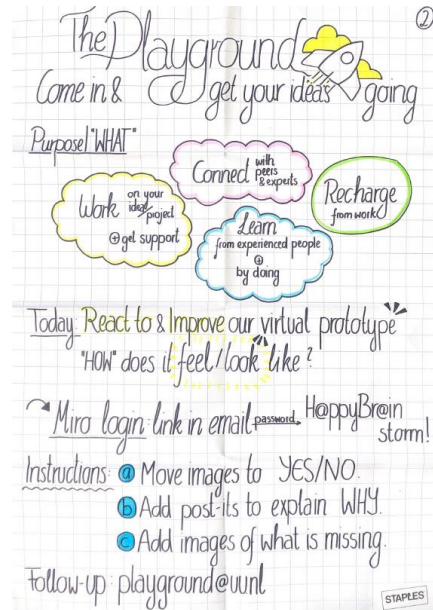 2
The Playground
Come in & get your ideas going
Purpose/"WHAT"
Connect with peers & experts
Work on your idea/project
⊕ get support
Recharge
from work
Learn
from experienced people
⊕
by doing
Today: React to & Improve our virtual prototype
"HOW" does it feel/look like?
Miro login: link in email password H@ppyBr@in
storm!
Instructions: a Move images to YES/NO.
b Add post-its to explain WHY.
c Add images of what is missing.
Follow-up: playground@uunl
STAPLES